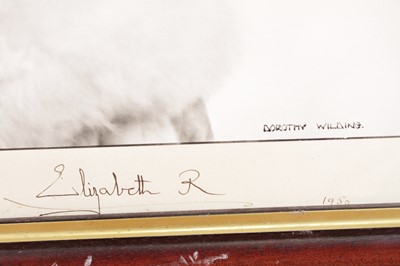 DOROTHY WILDING.
Elizabeth R